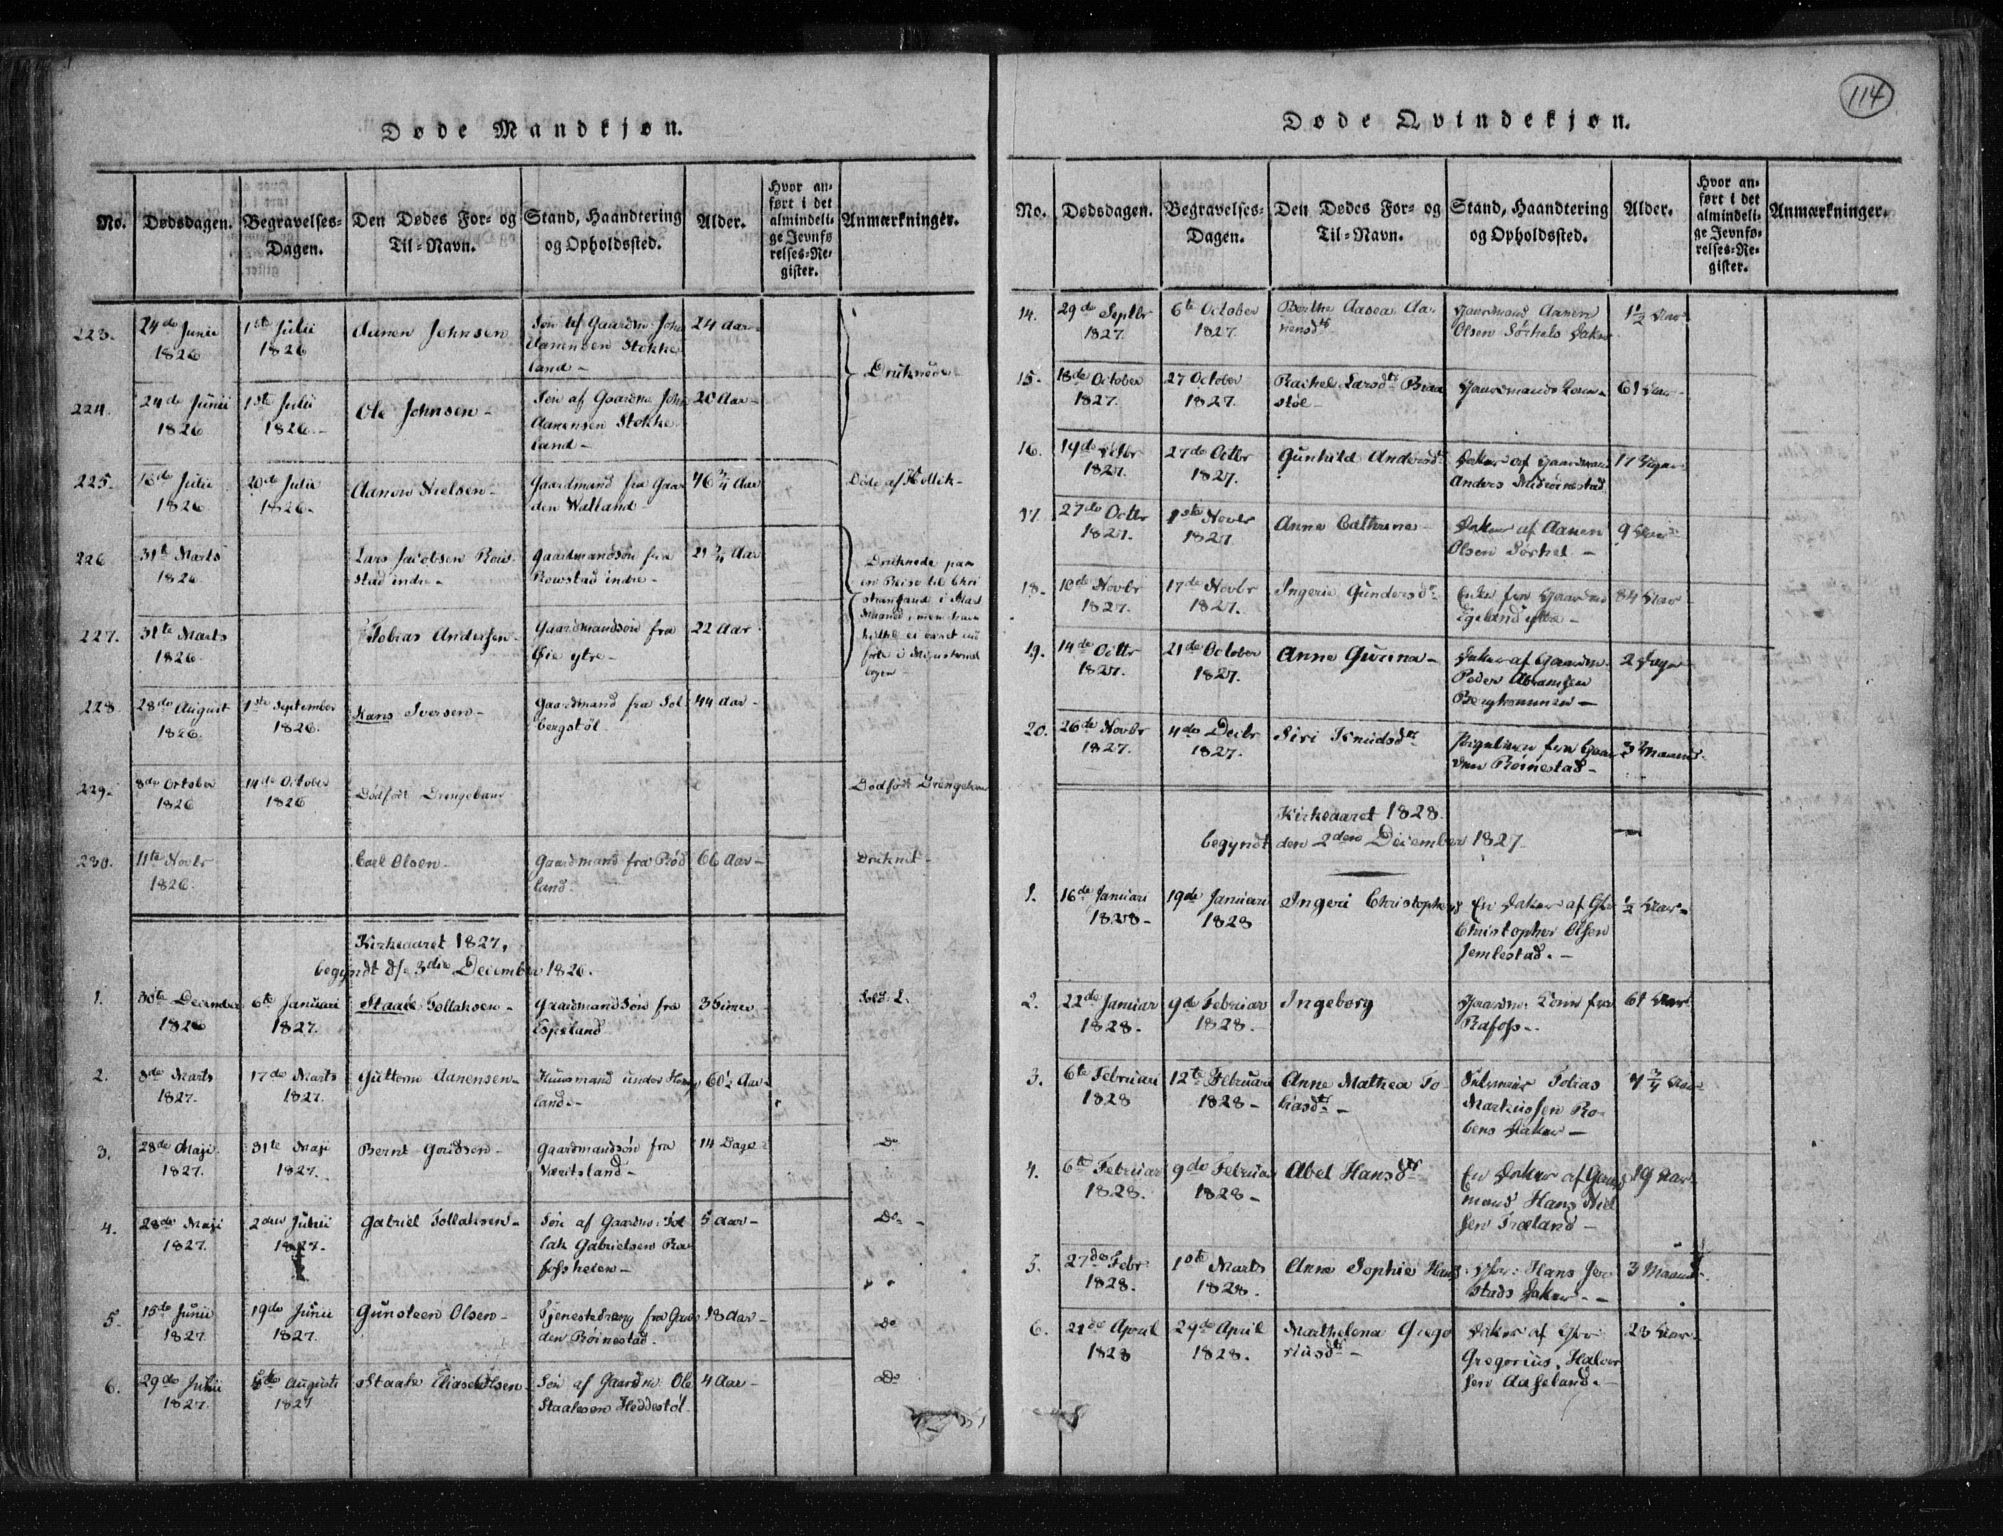 114
Døde Mandkjøn.
No. Dødsdagen. Begravelses-Dagen. Den Dødes For- og Til-Navn. Stand, Haandtering og Opholdssted. Alder. Hvor anført i det almindelige Jevnførelses-Register. Anmærkninger.
223. 24de Junii 1826 1ste Julii 1826 Aanen Johnsen Søn af Gaardm. John Aanensen Stokkeland 24 Aar Druknede
224. 24de Junii 1826 1ste Julii 1826 Ole Johnsen Søn af Gaardm. John Aanensen Stokkeland 20 Aar
225. 16de Julii 1826 20de Julii 1826 Aanon Nielsen Gaardmand fra Gaarden Watland 46 3/4 Aar Døde af Kollik
226. 31te Marts 1826 Lars Jacobsen Røiestad indre Gaardmandssøn fra indre 21 3/4 Aar Druknede paa en Reise til Christiansand i Marts Maaned, men
227. 31te Marts 1826 Tobias Andersen Gaardmandssøn fra Øie ytre 22 Aar
228. 28de August 1826 1ste September 1826 Hans Iversen Gaardmand fra Solbergstøl 44 Aar
229. 8de October 1826 14de October 1826 Dødfødt Drengebarn Dødfødt Drengebarn
230. 11te Novbr 1826 Carl Olsen Gaardmand fra Rødland 66 Aar Druknet
Kirkeaaret 1827,
begyndt d. 3die December 1826.
1. 30te December 1826 6te Januari 1827. Staale Tollaksen Gaardmandssøn fra Espeland 3 Timer
2. 8de Marts 1827. 17de Marts 1827. Guttorm Aanensen Huusmand under 60 1/2 Aar
3. 28de Maji 1827. 31te Maji 1827. Bernt Gaardmandssøn fra 14 Dage Do
4. 28de Maji 1827. 2den Junii 1827. Gabriel Tollaksen Søn af Gaardm. Tollak Gabrielsen Rafossheien 5 Aar Do
5. 15de Junii 1827. 19de Junii 1827. Gunsteen Olsen Tjenestedreng fra Gaarden Røinestad. 18 Aar Do
6. 29de Julii 1827. Augusti 1827 Staale Elias Olsen Søn af Gaardm. Ole Staalesen Heddestøl 4 Aar Do
Døde Qvindekjøn.
No. Dødsdagen. Begravelses-Dagen. Den Dødes For- og Til-Navn. Stand, Haandtering og Opholdssted. Alder. Hvor anført i det almindelige Jevnførelses-Register. Anmærkninger.
14. 29de Septbr 1827. 6te October 1827. Berthe Aasea Aanensdtr Gaardmand Aanen Olsen Sørhels Datter 1 1/2 Aar
15. 18de October 1827. 27 October 1827. Rachel Larsdtr Gaardmands Kone 61 Aar
16. 19de Octbr 1827. 27de Octbr 1827. Gunhild Andersdtr Datter af Gaardmand Anders 17 Dage
17. 27de Octbr 1827. 1ste Novbr 1827 Anne Cathrine Datter af Aanen Olsen Sørhel 9 Aar
18. 10de Novbr 1827. 17de Novbr 1827. Ingerie Gundersdtr Enke fra Gaarden Egeland ytre 84 Aar
19. 14de Octbr 1827. 21de October 1827. Anne Gurina Datter af Gaardm. Peder Abrahamsen 2 Dage
20. 26de Novbr 1827. 4de Decbr 1827. Siri Knudsdtr Pigebarn fra Gaarden Røinestad 3 Maaned
Kirkeaaret 1828.
begyndt den 2den December 1827.
1. 16de Januari 1828 19de Januari 1828 Ingeri Christophers En Datter af Gbr Christopher Olsen Jemlestad. 1/2 Aar
2. 22de Januar 1828. 9de Februar 1828. Ingeborg Gaardm. Kone fra Rafoss 61 Aar
3. 6te Februari 1828 12te Februari 1828 Anne Mathea Tobiasdtr Tobias Markussen Robens Datter 7 3/4 Aar
4. 6te Februar 1828. 9de Februar 1828 Abel Hansdtr En Datter af Gaardmand Hans Nielsen Træland 19 Aar
5. 27de Febr 1828. 1ste Marts 1828. Anne Sophie Hans Gbr. Hans Jerstads Datter 3 Maaned
6. 21de April 1828 29de April 1828. Mathelena Gregoriusdtr Datter af Gbr Gregorius Halvorsen Aaseland. 28 Aar